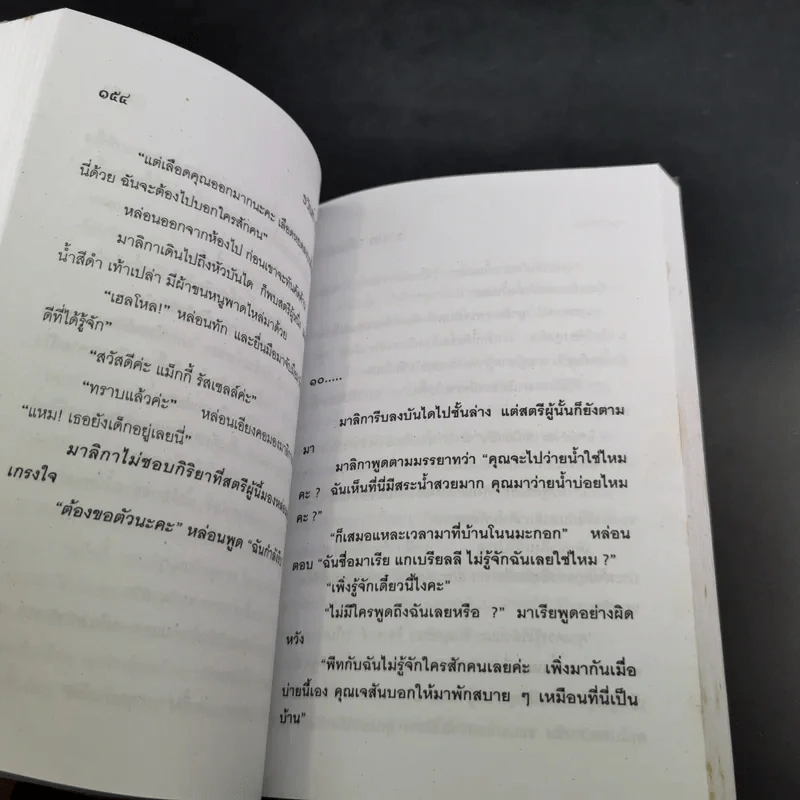 ๑๕๔
“แต่เลือดคุณออกมากนะคะ
นี่ด้วย ฉันจะต้องไปบอกใครสักคน”
หล่อนออกจากห้องไป ก่อนเขาจะทัน
มาลิกาเดินไปถึงหัวบันได ก็พบสตรีผู้หนึ่ง
น้ำสีดำ เท้าเปล่า มีผ้าขนหนูพาดไหล่มาด้วย
“เฮลโหล!” หล่อนทัก และยื่นมือมาจับ
ดีที่ได้รู้จัก”
“สวัสดีค่ะ แม็กกี้ รัสเซลล์ค่ะ”
“ทราบแล้วค่ะ” หล่อนเอียงคอมอง
“แหม! เธอยังเด็กอยู่เลยนี่”
มาลิกาไม่ชอบกิริยาที่สตรีผู้นี้มอง
เกรงใจ
“ต้องขอตัวนะคะ” หล่อนพูด “ฉันกำลัง
๑๐.....
มาลิการีบลงบันไดไปชั้นล่าง แต่สตรีผู้นั้นก็ยังตาม
มา
มาลิกาพูดตามมรรยาทว่า “คุณจะไปว่ายน้ำใช่ไหม
คะ ? ฉันเห็นที่นี่มีสระน้ำสวยมาก คุณมาว่ายน้ำบ่อยไหม
คะ ?”
“ก็เสมอแหละเวลามาที่บ้านโนนมะกอก” หล่อน
ตอบ “ฉันชื่อมาเรีย แกเบรียลลี ไม่รู้จักฉันเลยใช่ไหม ?”
“เพิ่งรู้จักเดี๋ยวนี้ไงคะ”
“ไม่มีใครพูดถึงฉันเลยหรือ ?” มาเรียพูดอย่างผิด
หวัง
“พีทกับฉันไม่รู้จักใครสักคนเลยค่ะ เพิ่งมากันเมื่อ
บ่ายนี้เอง คุณเจสันบอกให้มาพักสบาย ๆ เหมือนที่นี่เป็น
บ้าน”